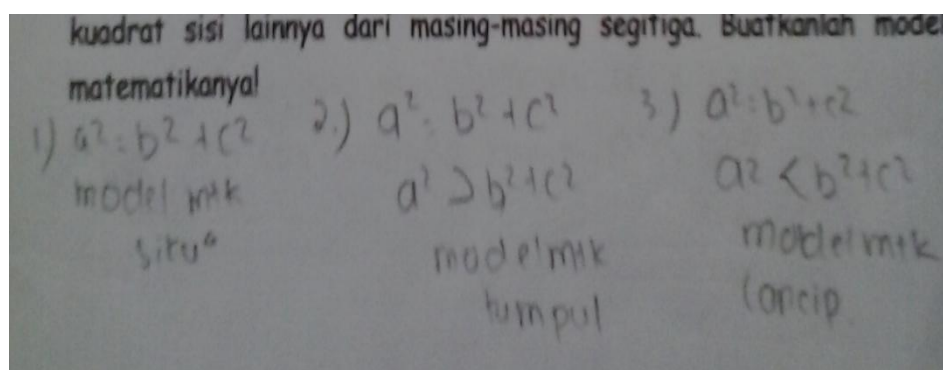 kuadrat sisi lainnya dari masing-masing segitiga. Buatkanlah model
matematikanya!
1) a² : b² + c²
model mtk
siku"
2.) a² : b² + c²
a² > b² + c²
model mtk
tumpul
3) a² : b² + c²
a² < b² + c²
model mtk
lancip